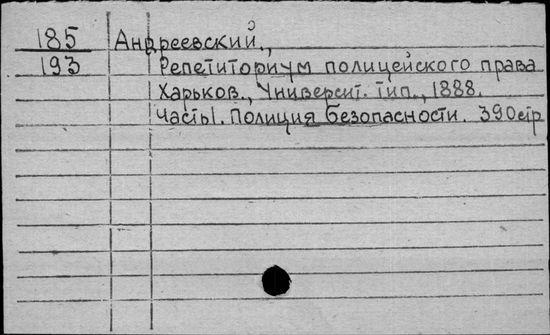 185 Андреевский.,
193 Репетиториум полицейского права
Харьков., Университ. Тип., 1888.
Часть I. Полиция безопасности. 390 стр